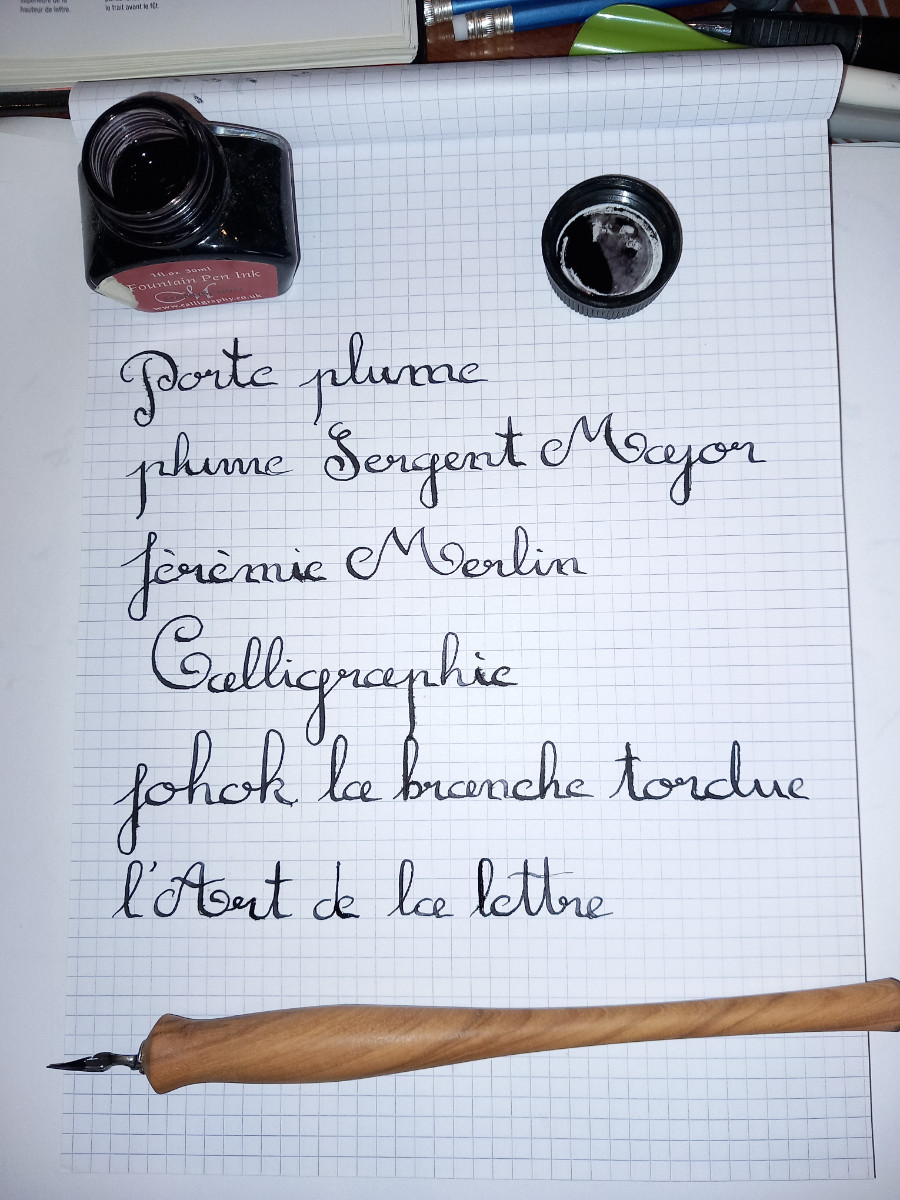 hauteur de lettre.
le trait avant le fût.
1fl.oz. 30ml
Fountain Pen Ink
www.calligraphy.co.uk
Porte plume
plume Sergent Major
Jèrèmie Merlin
Calligraphie
johok la branche tordue
l'Art de la lettre